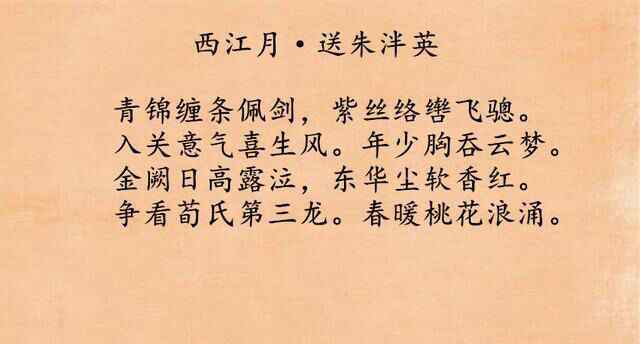 西江月·送朱泮英
青锦缠条佩剑，紫丝络辔飞骢。
入关意气喜生风。年少胸吞云梦。
金阙日高露泣，东华尘软香红。
争看荀氏第三龙。春暖桃花浪涌。